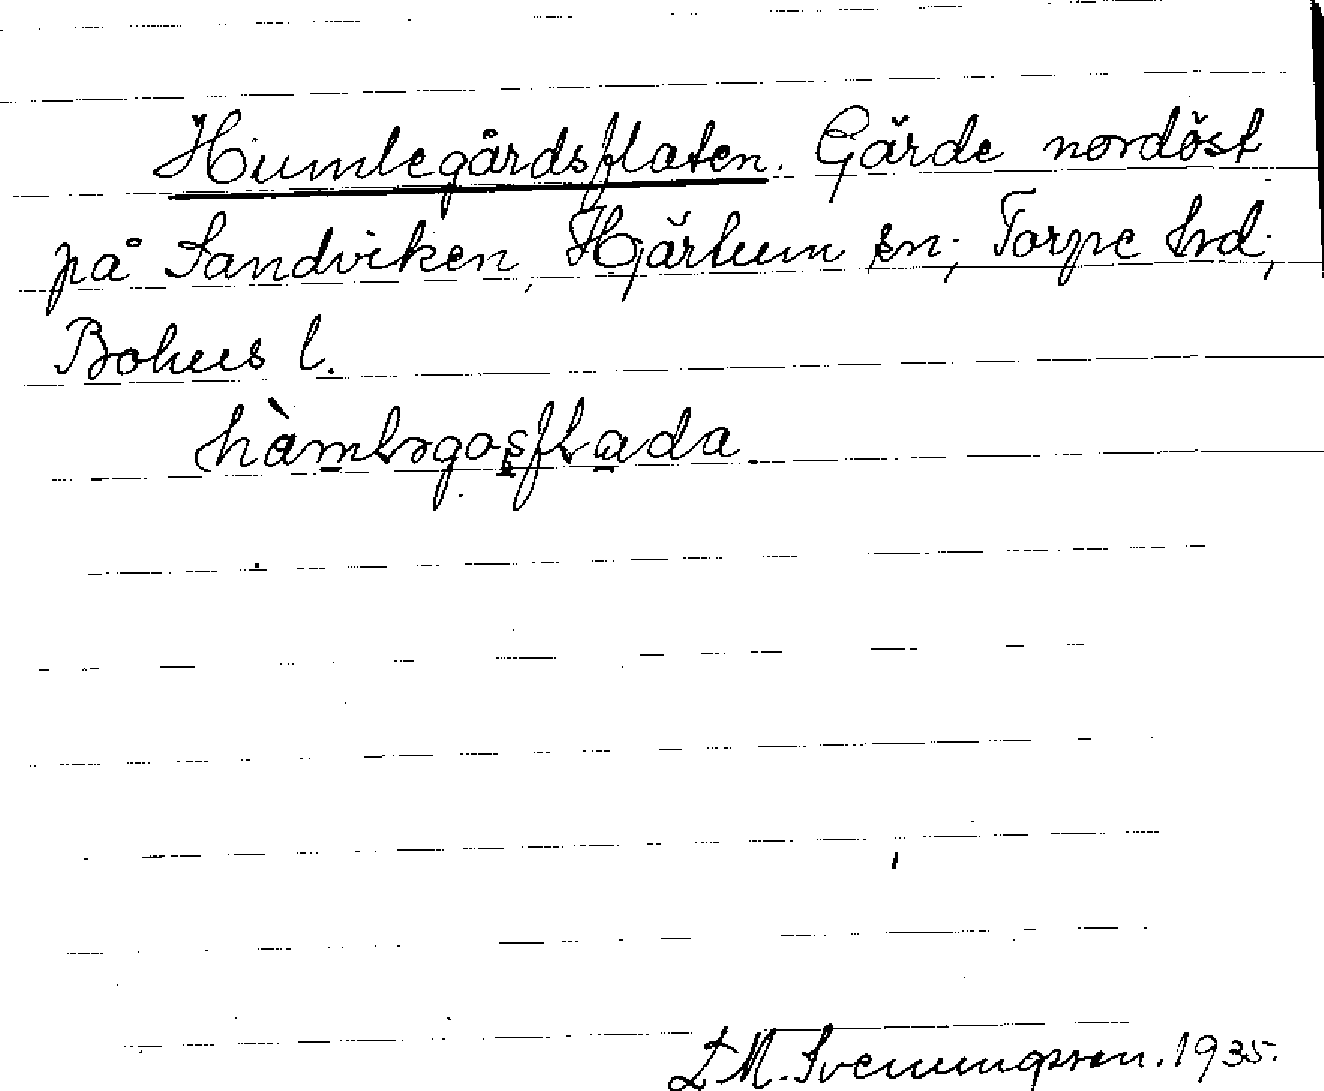 Humlegårdsflaten. Gärde nordöst
på Sandviken, Hjärtum sn, Torpe hd,
Bohus l.
D.M. Svenungsson. 1935.